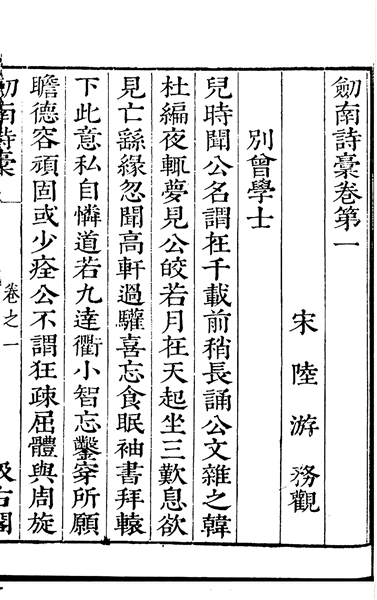 劒南詩稾卷第一
宋 陸 游 務觀
別曾學士
兒時聞公名謂在千載前稍長誦公文雜之韓
杜編夜輒夢見公皎若月在天起坐三歎息欲
見亡繇緣忽聞高軒過驩喜忘食眠袖書拜轅
下此意私自憐道若九逵衢小智忘鑿穿所願
瞻德容頑固或少痊公不謂狂疎屈體與周旋
劒南詩稾 卷之一 汲古閣